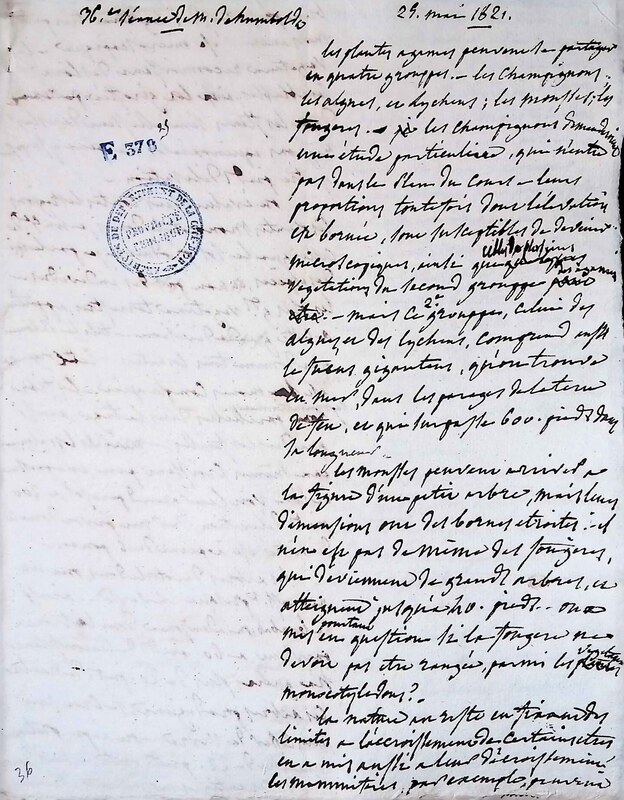 36.e séance de M. de humboldt
29. mai 1821.
les plantes agames peuvent se partager
en quatre grouppes. – les champignons.
les algues, et lychens; les mousses; les
fougeres. – les champignons demandent
une étude particuliere, qui n'entre
pas dans le plan du cours – leurs
proportions toutefois dont l'élévation
est bornée, sont susceptibles de devenir
microscopiques, ainsi que celles de plusieurs
végétations du second grouppe
– mais ce 2e grouppe, celui des
algues et des lychens, comprend aussi
le fucus giganteus, qu'on trouve
en mer, dans les parages de la terre
de feu, et qui surpasse 600. pieds dans
sa longueur.
les mousses peuvent arriver à
la figure d'un petit arbre, mais leurs
dimensions ont des bornes etroites: il
n'en est pas de même des fougeres,
qui deviennent de grands arbres, et
atteignent jusqu'à 40. pieds. on a
pourtant
mis en question si la fougere ne
devoit pas etre rangée, parmi les
monocotyledons?
la nature au reste en fixant des
limites à l'accroissement de certains etres
en a mis aussi à leur décroissement
les mammiferes, par exemple, peuvent
E 378
25
ARCHIVES DU DÉPARTEMENT DE LA
PROPRIÉTÉ
PUBLIQUE
36